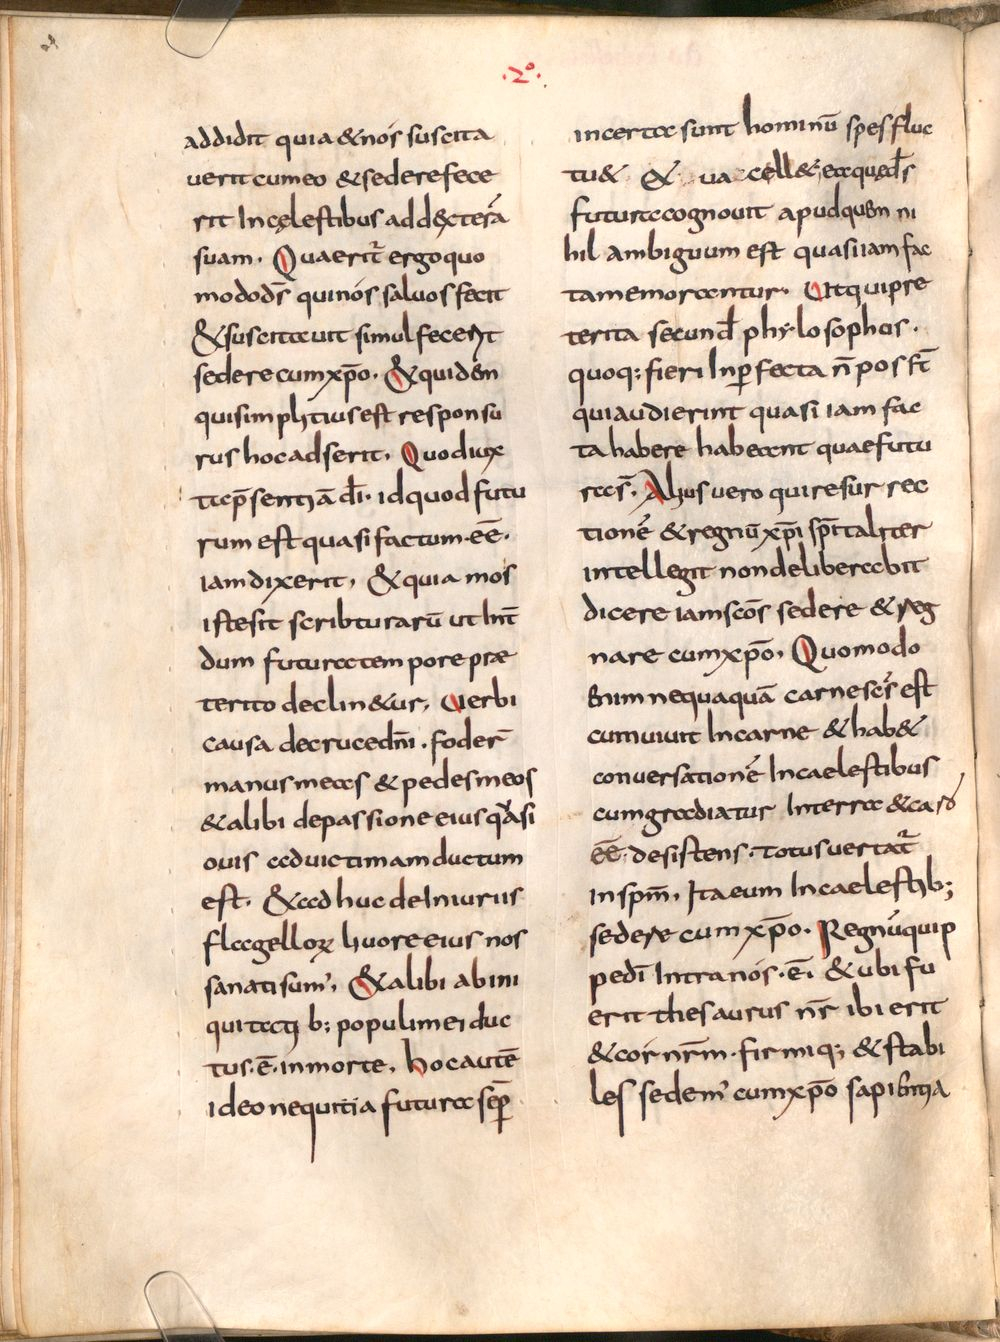 ·2º·
addidit quia & nos suscita
uerit cum eo & sedere fece
rit In cęlestibus ad dexterā
suam. Quaerit̄ ergo quo
modo dš qui nós saluos fecit
& suscitauit simul fecerit
sedere cum xp̄o. & quidem
qui simplitius est responsu
rus hoc adserit. Quod iux
ta p̄sentiā dī. id quod futu
rum est quasi factum·ēē·
iam dixerit, & quia mos
iste sit scribturarū ut Int̄
dum futura tempore præ
terito declin&ur, Uerbi
causa de cruce dnī. foder̄
manus meas & pedes meos
& alibi de passione eius quasi
ouis ad uictimam ductum
est. & ad huc de Iniuriis
flagelloꝝ liuore eius nos
sanati sum', & alibi ab ini
quitatib; populi mei duc
tus·ē·in morte, hoc autē
ideo ne quitia futura semp̄
incerta sunt hominū spes fluc
tu& & ua cell&, ecce quę d̄s
futura cognouit apud quem ni
hil ambiguum est quasi iam fac
ta memorantur. Utqui pre
terita secund̄ phylosophus.
quoq; fieri Inp̄fecta n̄ poss̄t
qui audierint quasi iam fac
ta habere habeant quae futu
ra s̄. Alius uero qui resurrec
tionē & regnū xp̄i sp̄italiter
intellegit non deliberabit
dicere iam scōs sedere & reg
nare cum xp̄o, Quomodo
enim nequaquā carne scs' est
cum uiuit In carne & hab&
conuersationē In caelestibus
cum gradiatur In terra & caro
ēē·desistens. Totus uertat̄
in sp̄m, Ita eum In caelestib;
sedere cum xp̄o. Regnū quip
pe dī Intra nós·ē· & ubi fu
erit thesaurus nr̄ ibi erit
& cór nr̄m. firmiq; & stabi
les sedem' cum xp̄o sapientia